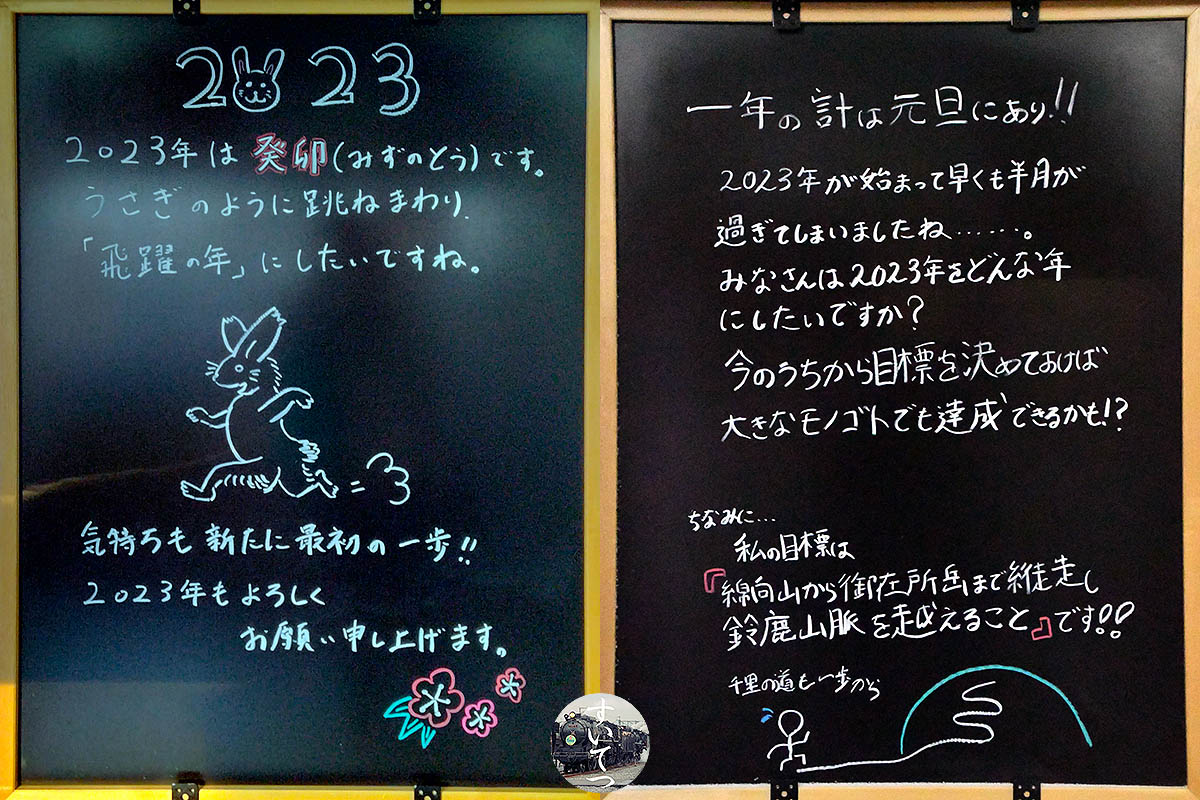 2023
2023年は癸卯(みずのとう)です。
うさぎのように跳ねまわり、
「飛躍の年」にしたいですね。
気持ちも新たに最初の一歩!!
2023年もよろしく
お願い申し上げます。
一年の計は元旦にあり!!
2023年が始まって早くも半月が
過ぎてしまいましたね……。
みなさんは2023年をどんな年
にしたいですか?
今のうちから目標を決めておけば
大きなモノゴトでも達成できるかも!?
ちなみに…
私の目標は
『綿向山から御在所岳まで縦走し
鈴鹿山脈を越えること』です!!
千里の道も一歩から
すいてつ